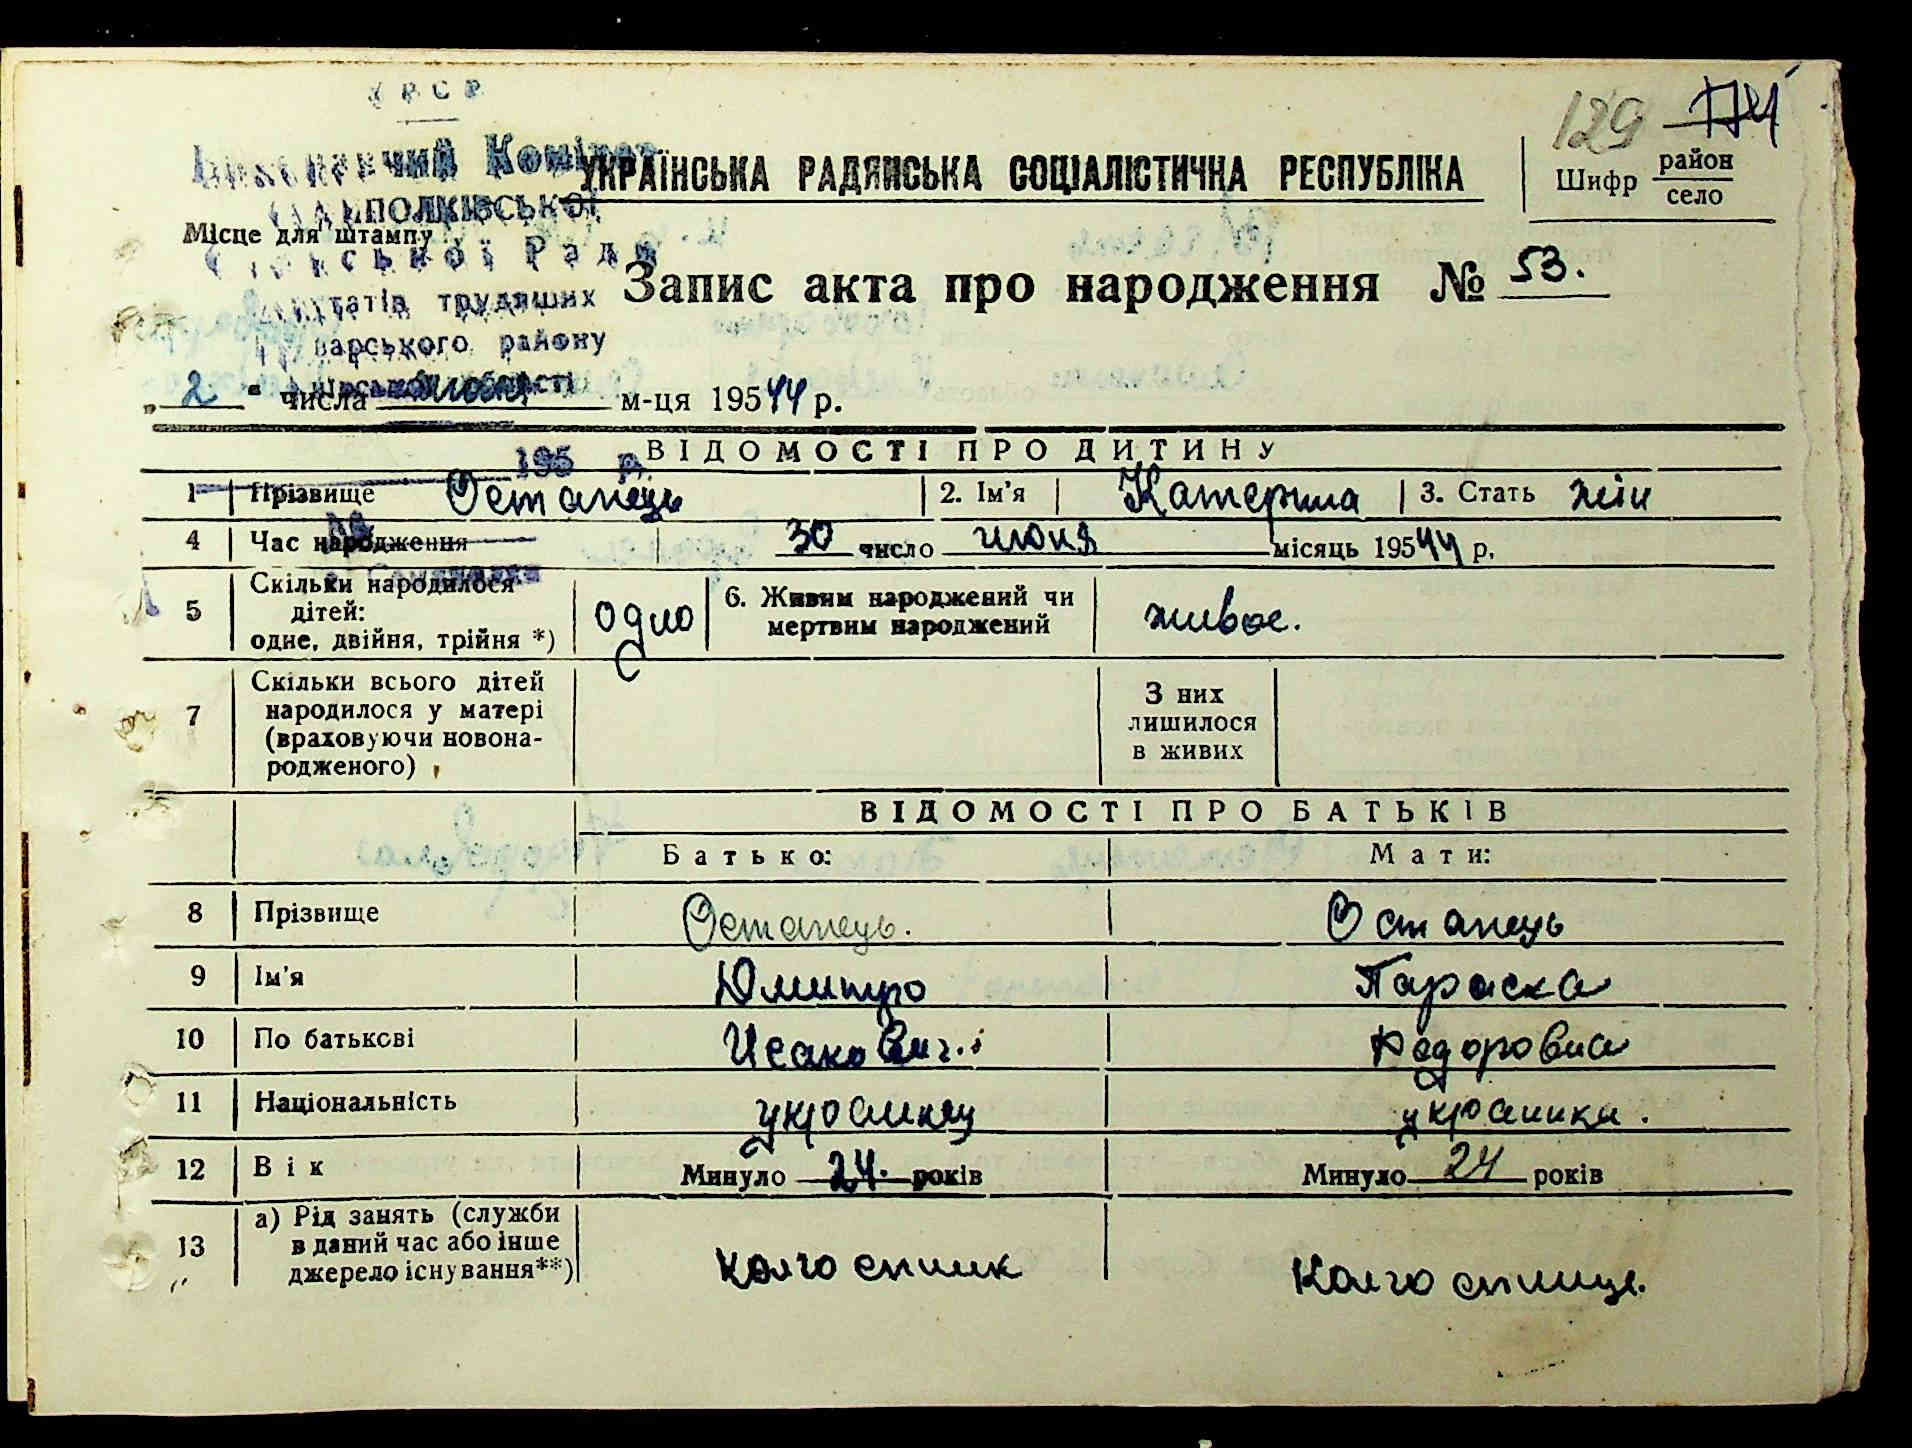 УРСР
129
Виконавчий Комітет
УКРАЇНСЬКА РАДЯНСЬКА СОЦІАЛІСТИЧНА РЕСПУБЛІКА
Шифр район
село
Місце для штампу
Сільської Ради
депутатів трудящих
Запис акта про народження № 53.
варського району
області
„ 2 " числа м-ця 195 44 р.
195 р.
ВІДОМОСТІ ПРО ДИТИНУ
1 Прізвище Остапець 2. Ім'я Катерина 3. Стать жін
4 Час народження 30 число июня місяць 195 44 р.
5 Скільки народилося дітей: одне, двійня, трійня *) одно 6. Живим народжений чи мертвим народжений живое.
7 Скільки всього дітей народилося у матері (враховуючи новонародженого) З них лишилося в живих
ВІДОМОСТІ ПРО БАТЬКІВ
Батько: Мати:
8 Прізвище Остапець. Остапець
9 Ім'я Дмитро Параска
10 По батькові Исакович Федоровна
11 Національність украинец украинка.
12 Вік Минуло 24. років Минуло 24 років
13 а) Рід занять (служби в даний час або інше джерело існування**) колгоспник Колгоспниця.